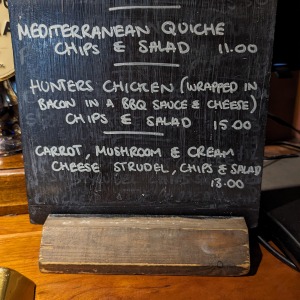 MEDITERRANEAN QUICHE
CHIPS & SALAD 11.00
HUNTERS CHICKEN (WRAPPED IN
BACON IN A BBQ SAUCE & CHEESE)
CHIPS & SALAD 15.00
CARROT, MUSHROOM & CREAM
CHEESE STRUDEL, CHIPS & SALAD
13.00